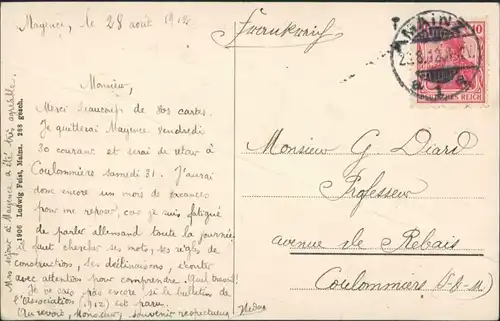 Mayence, le 28 août 1912
Monsieur,
Merci beaucoup de vos cartes.
Je quitterai Mayence vendredi
30 courant et serai de retour à
Coulommiers samedi 31. J'aurai
donc encore un mois de vacances
pour me reposer, car je suis fatigué
de parler allemand toute la journée
faut chercher ses mots, ses règles de
construction, ses déclinaisons, écouter
avec attention pour comprendre. Quel travail!
Je ne sais pas encore si le bulletin de
l'Association (1912) est paru.
Au revoir, Monsieur, souvenir respectueux
Mon séjour à Mayence a été très agréable.
1906 Ludwig Feist, Mainz. 288 gesch.
Frankreich
MAINZ
1
DEUTSCHES REICH
10
Monsieur G Diard
Professeur
avenue de Rebais
Coulommiers (S-&-M)